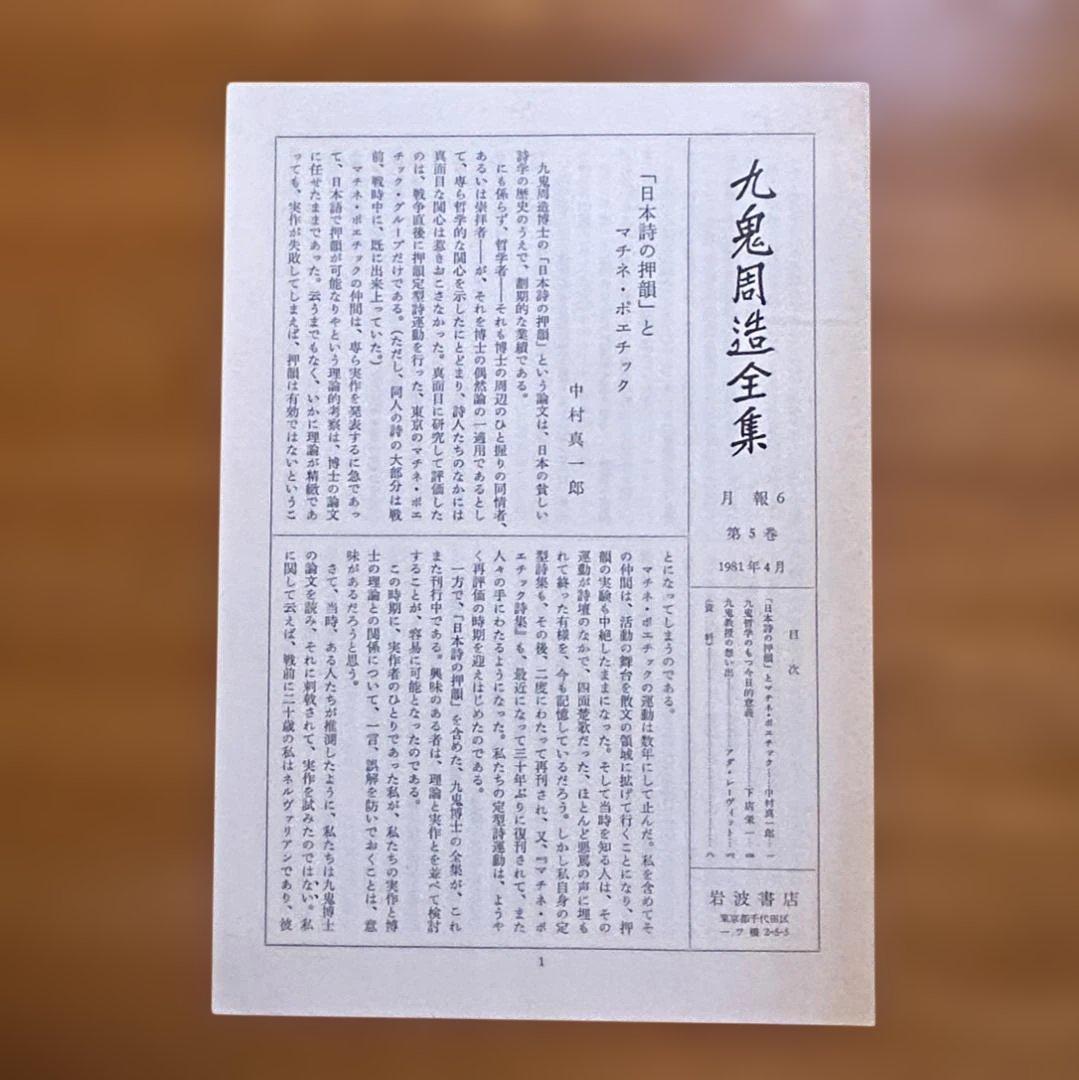 九鬼周造全集
月報6
第5巻
1981年4月
目次
「日本詩の押韻」とマチネ・ポエチック……中村真一郎…一
九鬼哲学のもつ今日的意義……下店栄一…四
九鬼教授の想い出……アダ・レーヴィット…六
〈資料〉……八
岩波書店
東京都千代田区
一ツ橋2-5-5
「日本詩の押韻」と
マチネ・ポエチック
中村真一郎
九鬼周造博士の「日本詩の押韻」という論文は、日本の貧しい
詩学の歴史のうえで、劃期的な業績である。
にも係らず、哲学者――それも博士の周辺のひと握りの同情者、
あるいは崇拝者――が、それを博士の偶然論の一適用であるとし
て、専ら哲学的な関心を示したにとどまり、詩人たちのなかには
真面目な関心は惹きおこさなかった。真面目に研究して評価した
のは、戦争直後に押韻定型詩運動を行った、東京のマチネ・ポエ
チック・グループだけである。（ただし、同人の詩の大部分は戦
前、戦時中に、既に出来上っていた。）
マチネ・ポエチックの仲間は、専ら実作を発表するに急であっ
て、日本語で押韻が可能なりやという理論的考察は、博士の論文
に任せたままであった。云うまでもなく、いかに理論が精緻であ
っても、実作が失敗してしまえば、押韻は有効ではないというこ
とになってしまうのである。
マチネ・ポエチックの運動は数年にして止んだ。私を含めてそ
の仲間は、活動の舞台を散文の領域に拡げて行くことになり、押
韻の実験も中絶したままになった。そして当時を知る人は、その
運動が詩壇のなかで、四面楚歌だった、ほとんど悪罵の声に埋も
れて終った有様を、今も記憶しているだろう。しかし私自身の定
型詩集も、その後、二度にわたって再刊され、又、『マチネ・ポ
エチック詩集』も、最近になって三十年ぶりに復刊されて、また
人々の手にわたるようになった。私たちの定型詩運動は、ようや
く再評価の時期を迎えはじめたのである。
一方で、「日本詩の押韻」を含めた、九鬼博士の全集が、これ
また刊行中である。興味のある者は、理論と実作とを並べて検討
することが、容易に可能となったのである。
この時期に、実作者のひとりであった私が、私たちの実作と博
士の理論との関係について、一言、誤解を防いでおくことは、意
味があるだろうと思う。
さて、当時、ある人たちが推測したように、私たちは九鬼博士
の論文を読み、それに刺戟されて、実作を試みたのではない。私
に関して云えば、戦前に二十歳の私はネルヴァリアンであり、彼
1